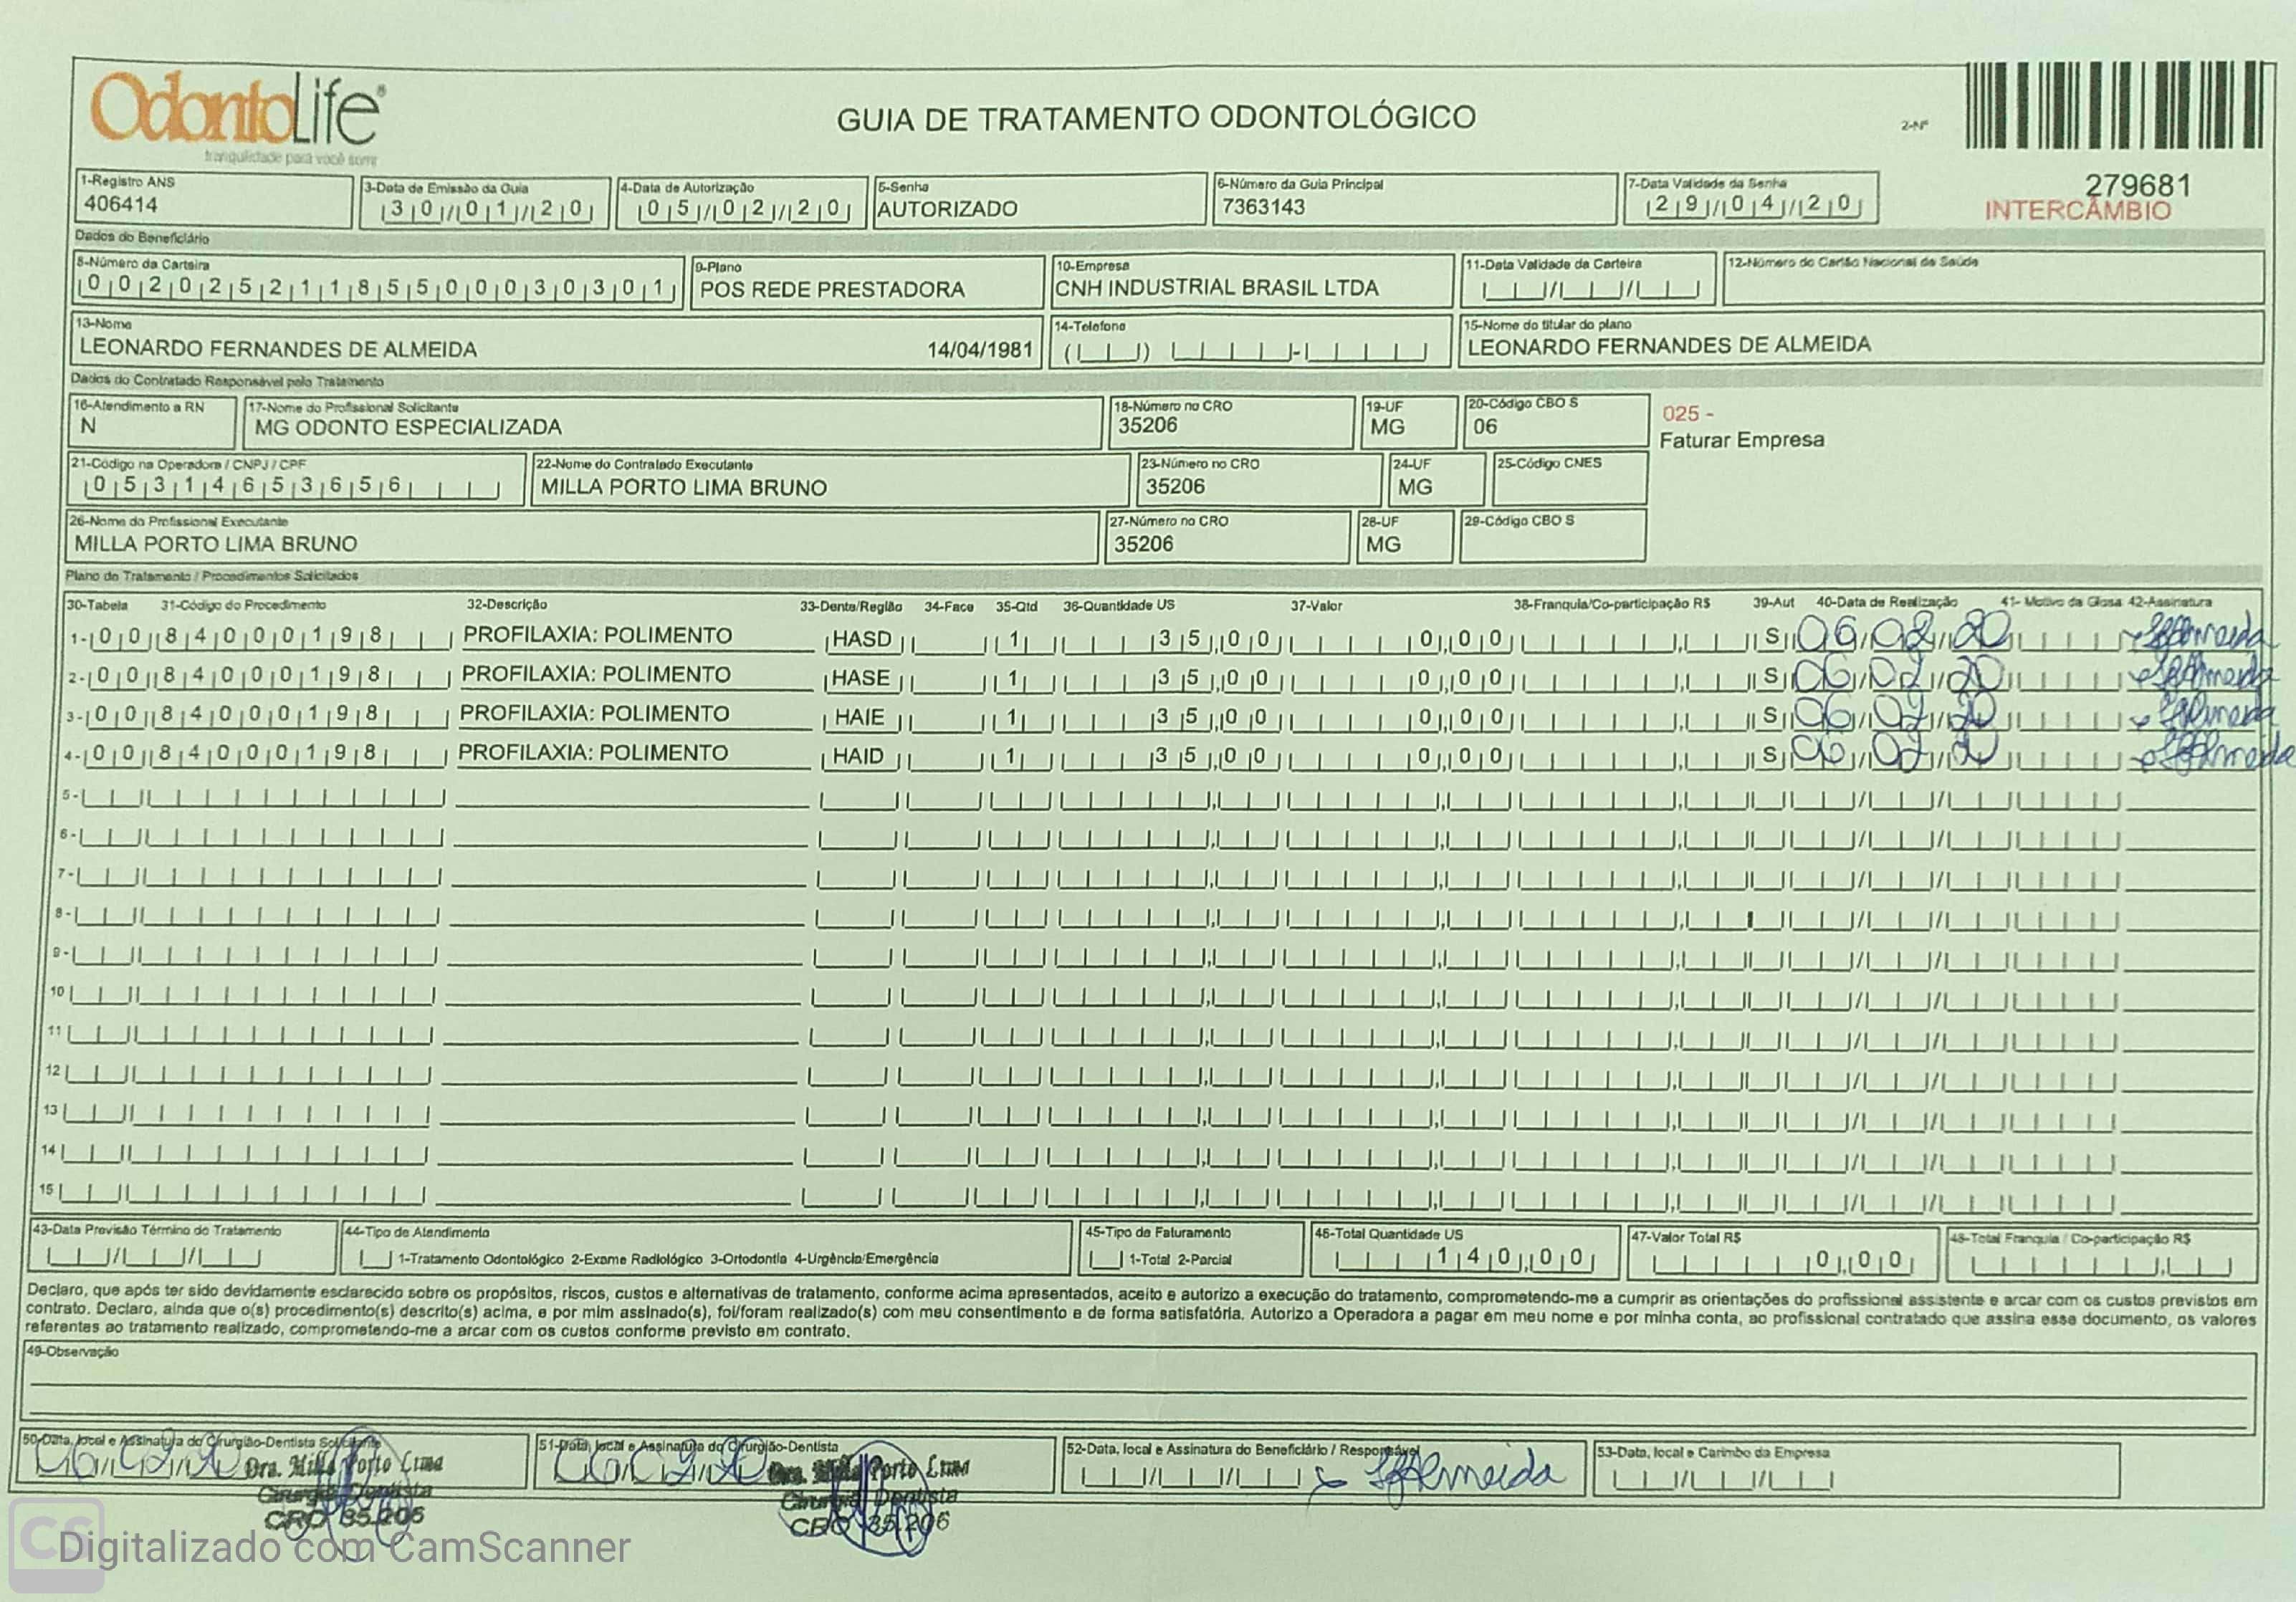 OdontoLife®
tranquilidade para você sorrir
GUIA DE TRATAMENTO ODONTOLÓGICO
2-Nº
279681
INTERCÂMBIO
1-Registro ANS
406414
3-Data de Emissão da Guia
30/01/20
4-Data de Autorização
05/02/20
5-Senha
AUTORIZADO
6-Número da Guia Principal
7363143
7-Data Validade da Senha
29/04/20
Dados do Beneficiário
8-Número da Carteira
00202521185500030301
9-Plano
POS REDE PRESTADORA
10-Empresa
CNH INDUSTRIAL BRASIL LTDA
11-Data Validade da Carteira
12-Número do Cartão Nacional de Saúde
13-Nome
LEONARDO FERNANDES DE ALMEIDA 14/04/1981
14-Telefone
15-Nome do titular do plano
LEONARDO FERNANDES DE ALMEIDA
Dados do Contratado Responsável pelo Tratamento
16-Atendimento a RN
N
17-Nome do Profissional Solicitante
MG ODONTO ESPECIALIZADA
18-Número no CRO
35206
19-UF
MG
20-Código CBO S
06
025 -
Faturar Empresa
21-Código na Operadora / CNPJ / CPF
05314653656
22-Nome do Contratado Executante
MILLA PORTO LIMA BRUNO
23-Número no CRO
35206
24-UF
MG
25-Código CNES
26-Nome do Profissional Executante
MILLA PORTO LIMA BRUNO
27-Número no CRO
35206
28-UF
MG
29-Código CBO S
Plano de Tratamento / Procedimentos Solicitados
30-Tabela 31-Código do Procedimento 32-Descrição 33-Dente/Região 34-Face 35-Qtd 36-Quantidade US 37-Valor 38-Franquia/Co-participação R$ 39-Aut 40-Data de Realização 41- Motivo da Glosa 42-Assinatura
1- 00 84000198 PROFILAXIA: POLIMENTO HASD 1 35,00 0,00 S 06/02/20 Almeida
2- 00 84000198 PROFILAXIA: POLIMENTO HASE 1 35,00 0,00 S 06/02/20 Almeida
3- 00 84000198 PROFILAXIA: POLIMENTO HAIE 1 35,00 0,00 S 06/02/20 Almeida
4- 00 84000198 PROFILAXIA: POLIMENTO HAID 1 35,00 0,00 S 06/02/20 Almeida
5-
6-
7-
8-
9-
10
11
12
13
14
15
43-Data Previsão Término do Tratamento
44-Tipo de Atendimento
1-Tratamento Odontológico 2-Exame Radiológico 3-Ortodontia 4-Urgência/Emergência
45-Tipo de Faturamento
1-Total 2-Parcial
46-Total Quantidade US
140,00
47-Valor Total R$
0,00
48-Total Franquia / Co-participação R$
Declaro, que após ter sido devidamente esclarecido sobre os propósitos, riscos, custos e alternativas de tratamento, conforme acima apresentados, aceito e autorizo a execução do tratamento, comprometendo-me a cumprir as orientações do profissional assistente e arcar com os custos previstos em
contrato. Declaro, ainda que o(s) procedimento(s) descrito(s) acima, e por mim assinado(s), foi/foram realizado(s) com meu consentimento e de forma satisfatória. Autorizo a Operadora a pagar em meu nome e por minha conta, ao profissional contratado que assina esse documento, os valores
referentes ao tratamento realizado, comprometendo-me a arcar com os custos conforme previsto em contrato.
49-Observação
50-Data, local e Assinatura do Cirurgião-Dentista Solicitante
06/02/20 Dra. Milla Porto Lima
Cirurgiã Dentista
CRO 35.206
51-Data, local e Assinatura do Cirurgião-Dentista
06/02/20 Dra. Milla Porto Lima
Cirurgiã Dentista
CRO 35.206
52-Data, local e Assinatura do Beneficiário / Responsável
Almeida
53-Data, local e Carimbo da Empresa
CS
Digitalizado com CamScanner